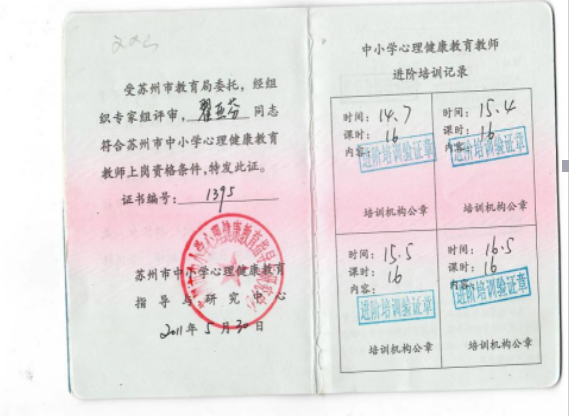 受苏州市教育局委托，经组
织专家组评审，翟亚芬 同志
符合苏州市中小学心理健康教育
教师上岗资格条件，特发此证。
证书编号：1395
苏州市中小学心理健康教育
指导与研究中心
2011年5月30日
中小学心理健康教育教师
进阶培训记录
时间：14.7
课时：16
内容：
进阶培训验证章
培训机构公章
时间：15.4
课时：16
内容：
进阶培训验证章
培训机构公章
时间：15.5
课时：16
内容：
进阶培训验证章
培训机构公章
时间：16.5
课时：16
内容：
进阶培训验证章
培训机构公章